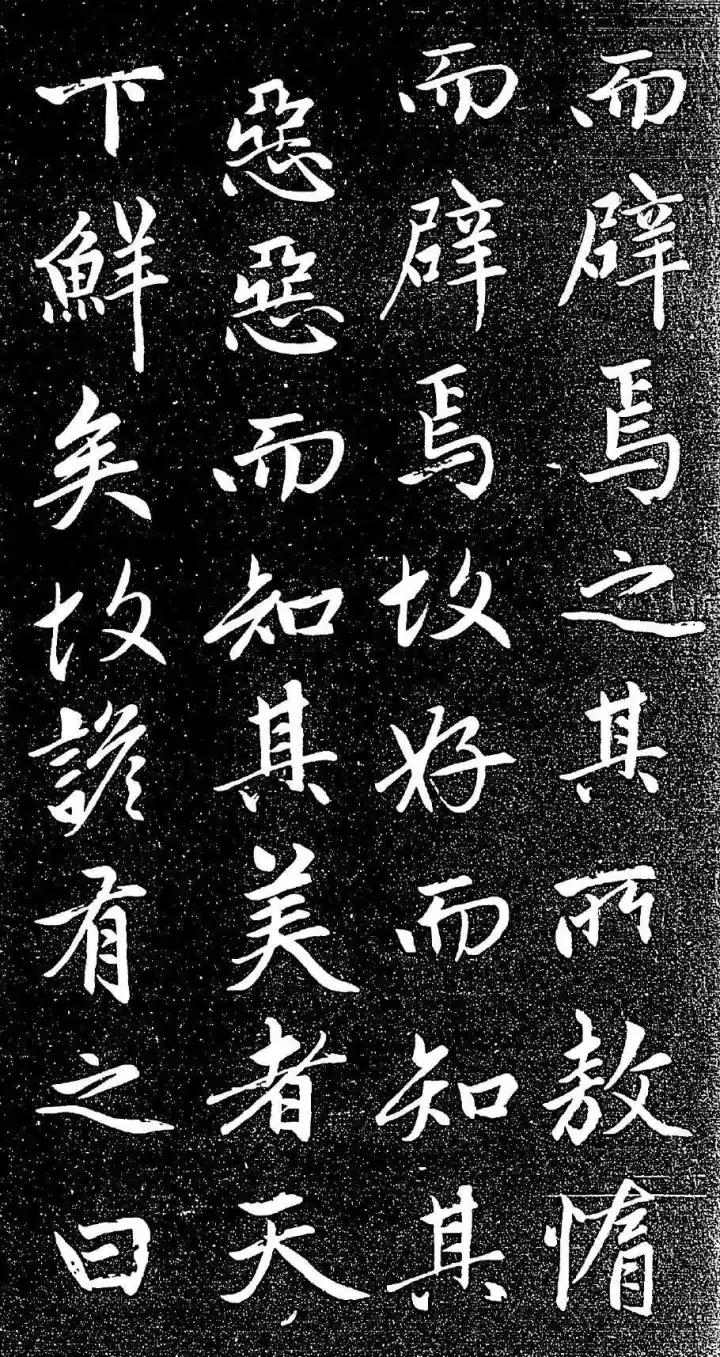 而辟焉之其所敖惰
而辟焉故好而知其
惡惡而知其美者天
下鮮矣故諺有之曰